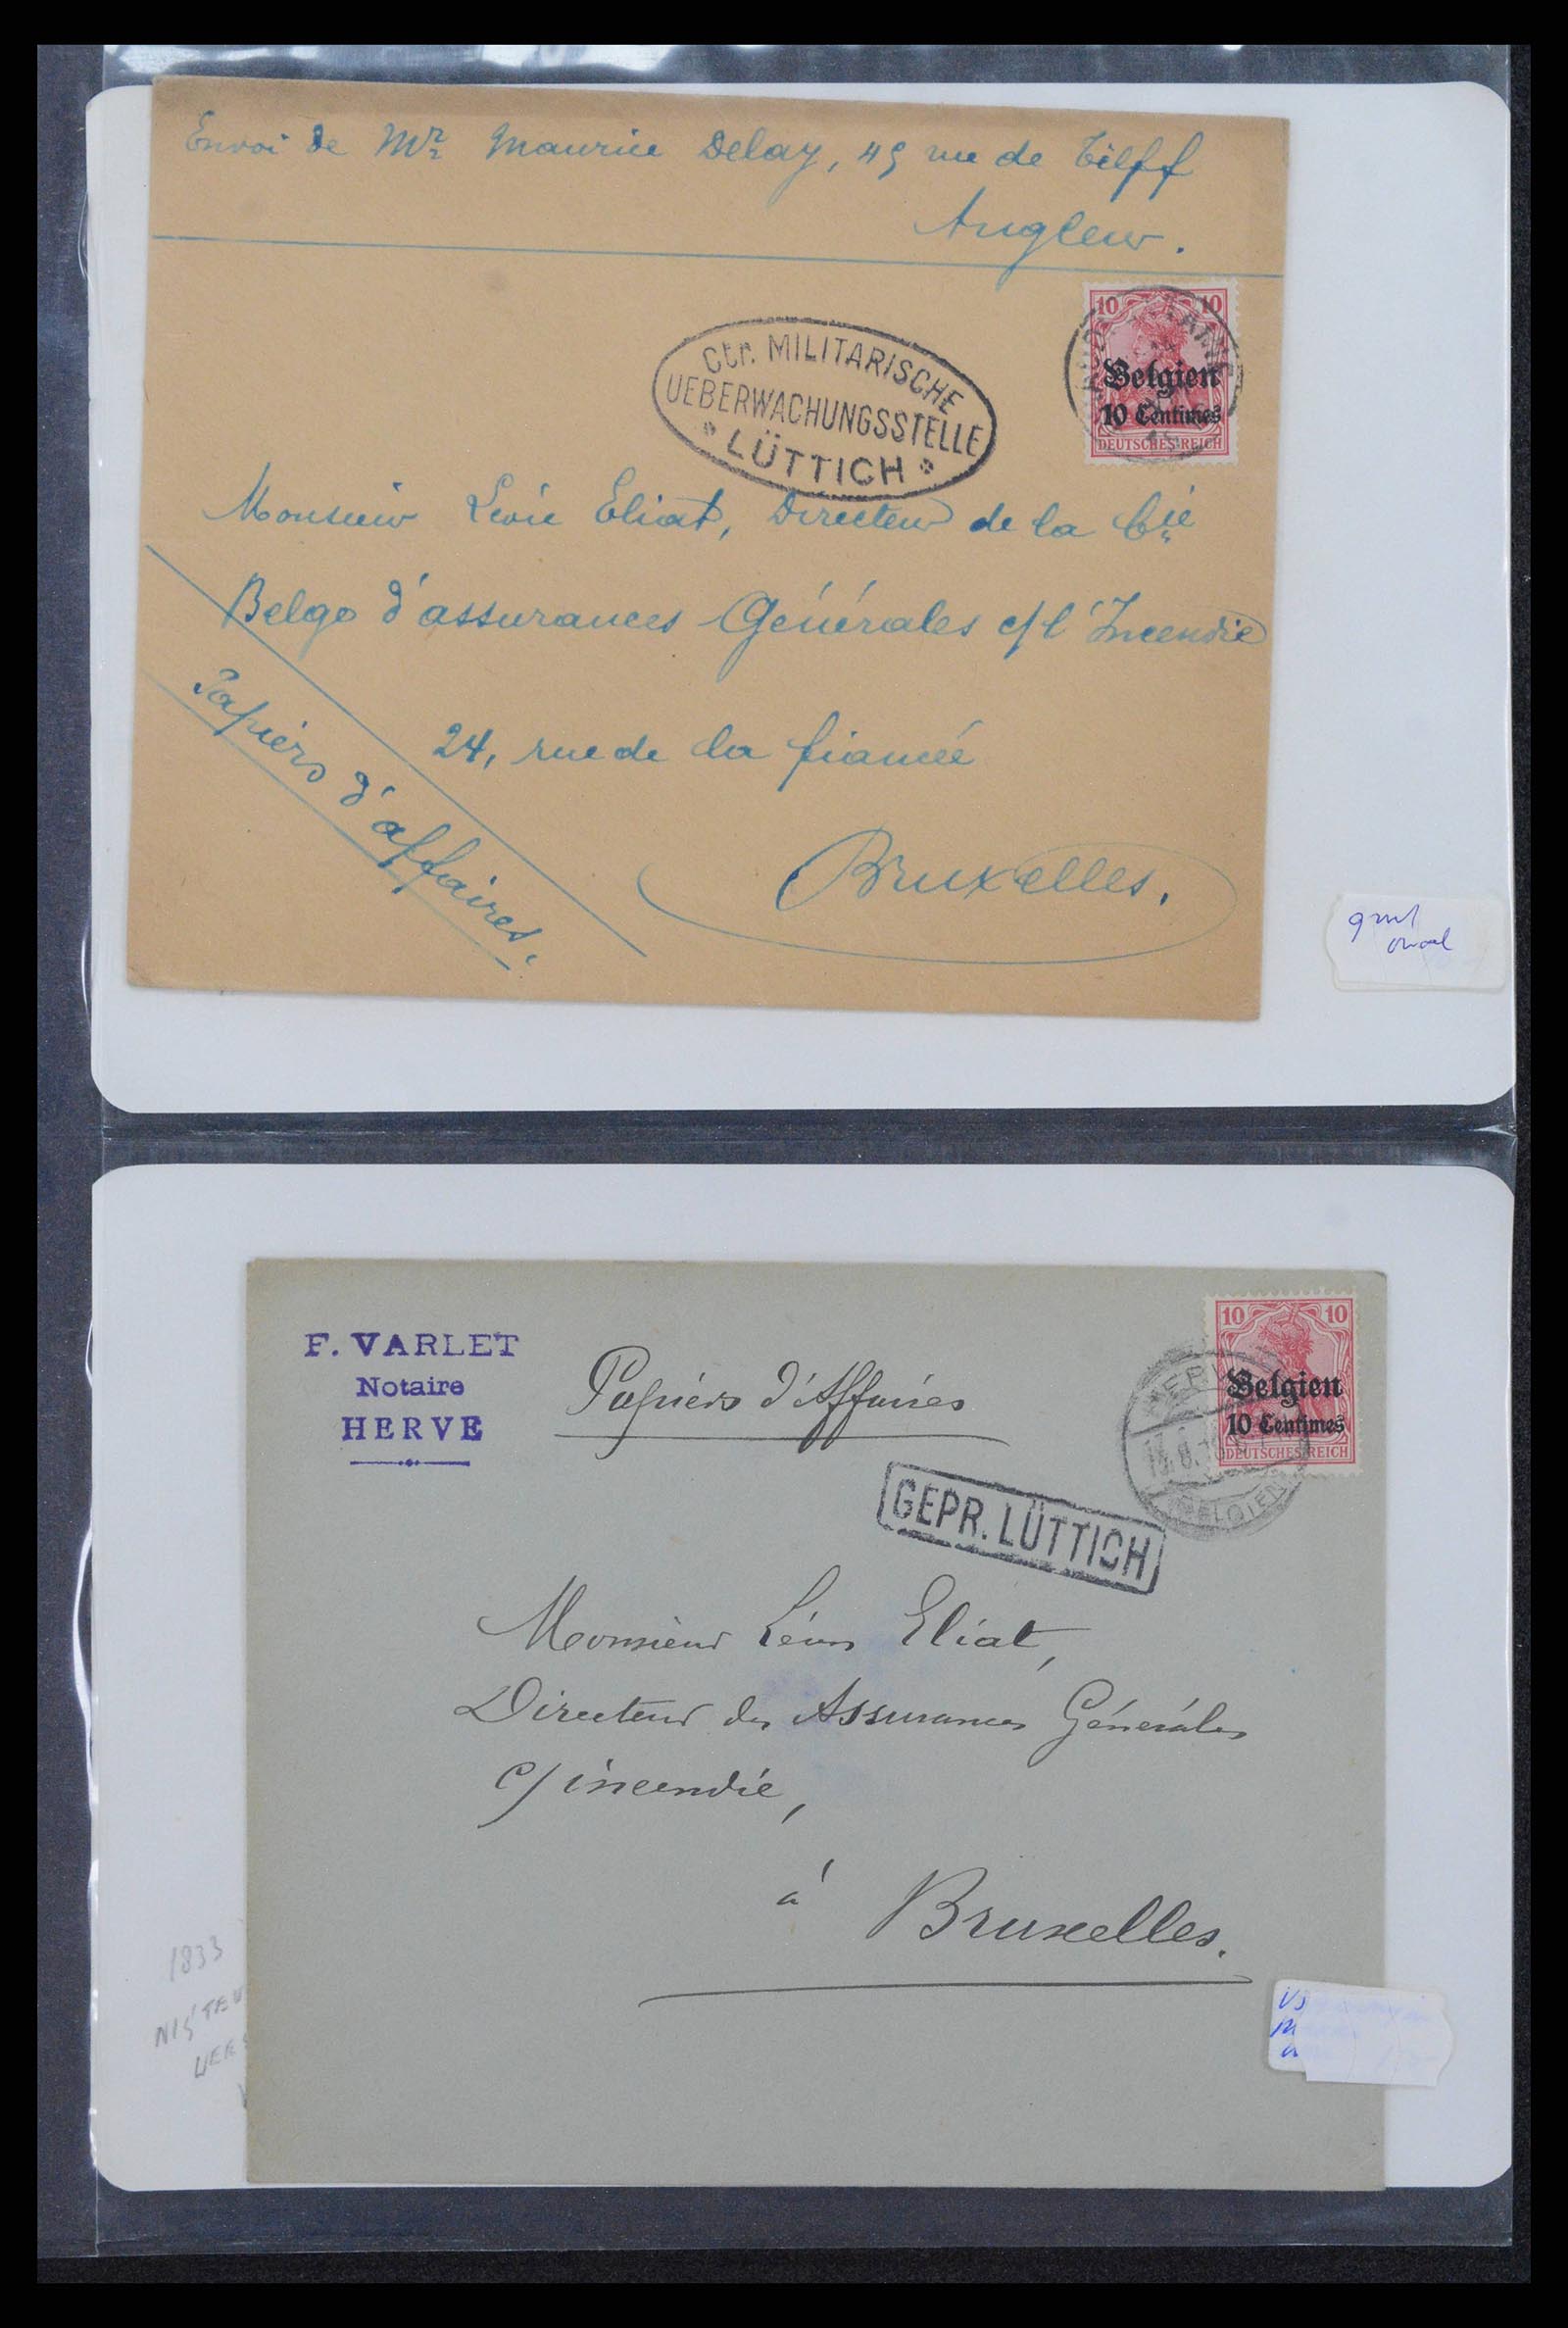 Envoi de Mr Maurice Delay, 45 rue de Tilff
Angleur.
10 10
Belgien
10 Centimes
DEUTSCHES REICH
Ctr. MILITARISCHE
UEBERWACHUNGSSTELLE
LÜTTICH
Monsieur Léon Eliat, Directeur de la Cie
Belge d'assurances Générales c/l'Incendie
24, rue de la fiancée
Papiers d'affaires.
Bruxelles.
ovaal
F. VARLET
Notaire
HERVE
Papiers d'Affaires
10 10
Belgien
10 Centimes
DEUTSCHES REICH
HERVE
(BELGIEN)
GEPR. LÜTTICH
Monsieur Léon Eliat,
Directeur des Assurances Générales
c/ incendie,
à Bruxelles.
1833